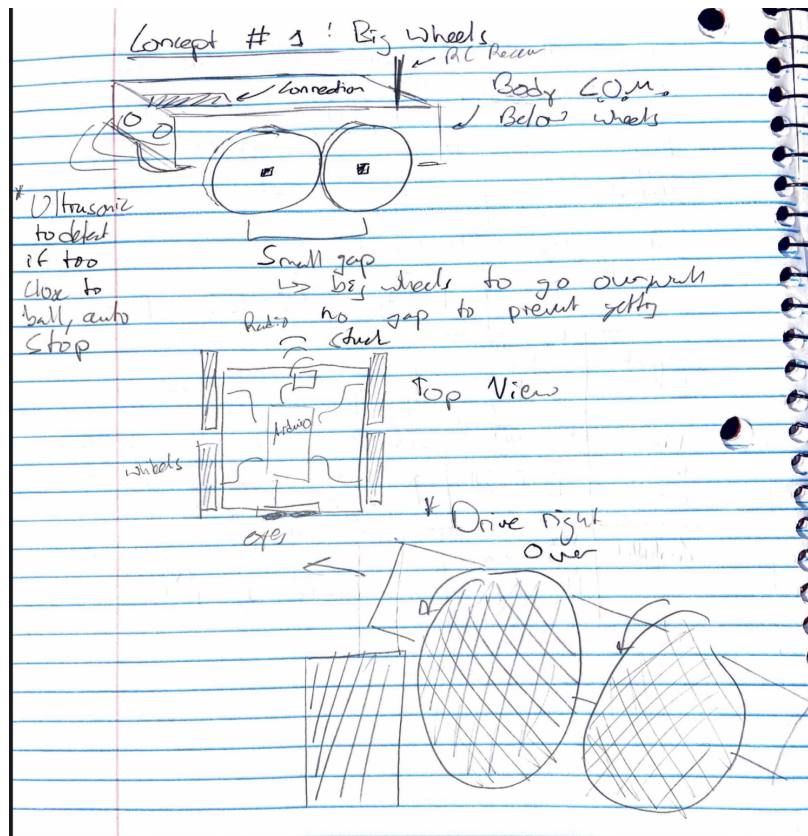 Concept # 1 : Big wheels
RC
Connection
Body C.O.M.
Below wheels
* Ultrasonic
to detect
if too
close to
ball, auto
stop
Small gap
↳ big wheels to go over wall
no gap to prevent getting
stuck
Radio
Top View
Arduino
wheels
eyes
* Drive right
over